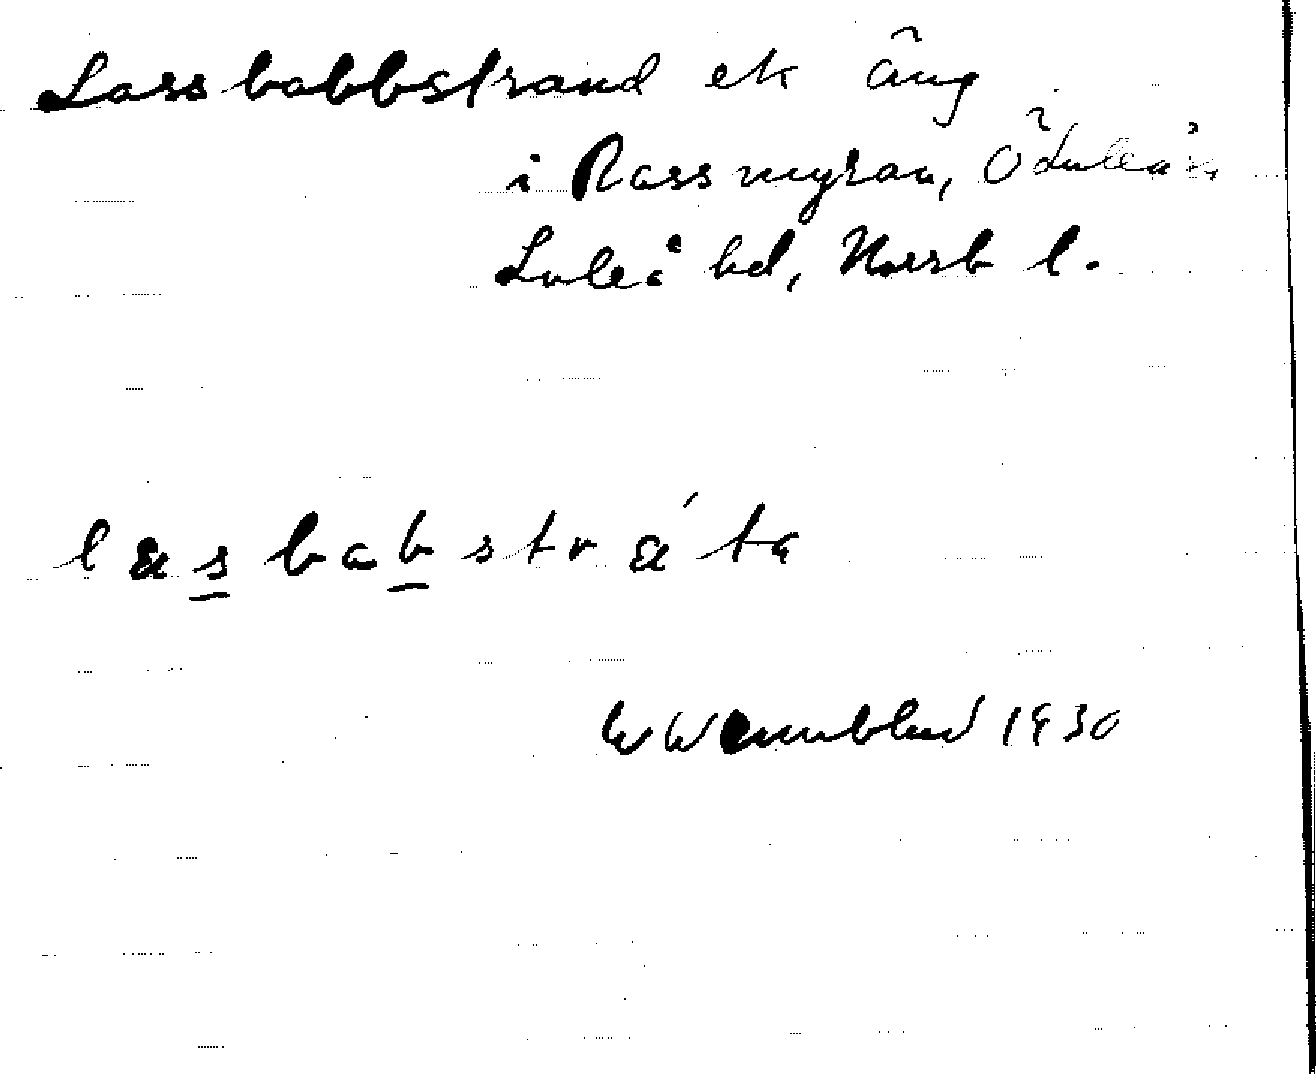 Lassbabbstrand ek äng
i Rassmyran, Ö Luleå sn,
Luleå hd, Norrb l.
lasbabstráta
W Wennblad 1930